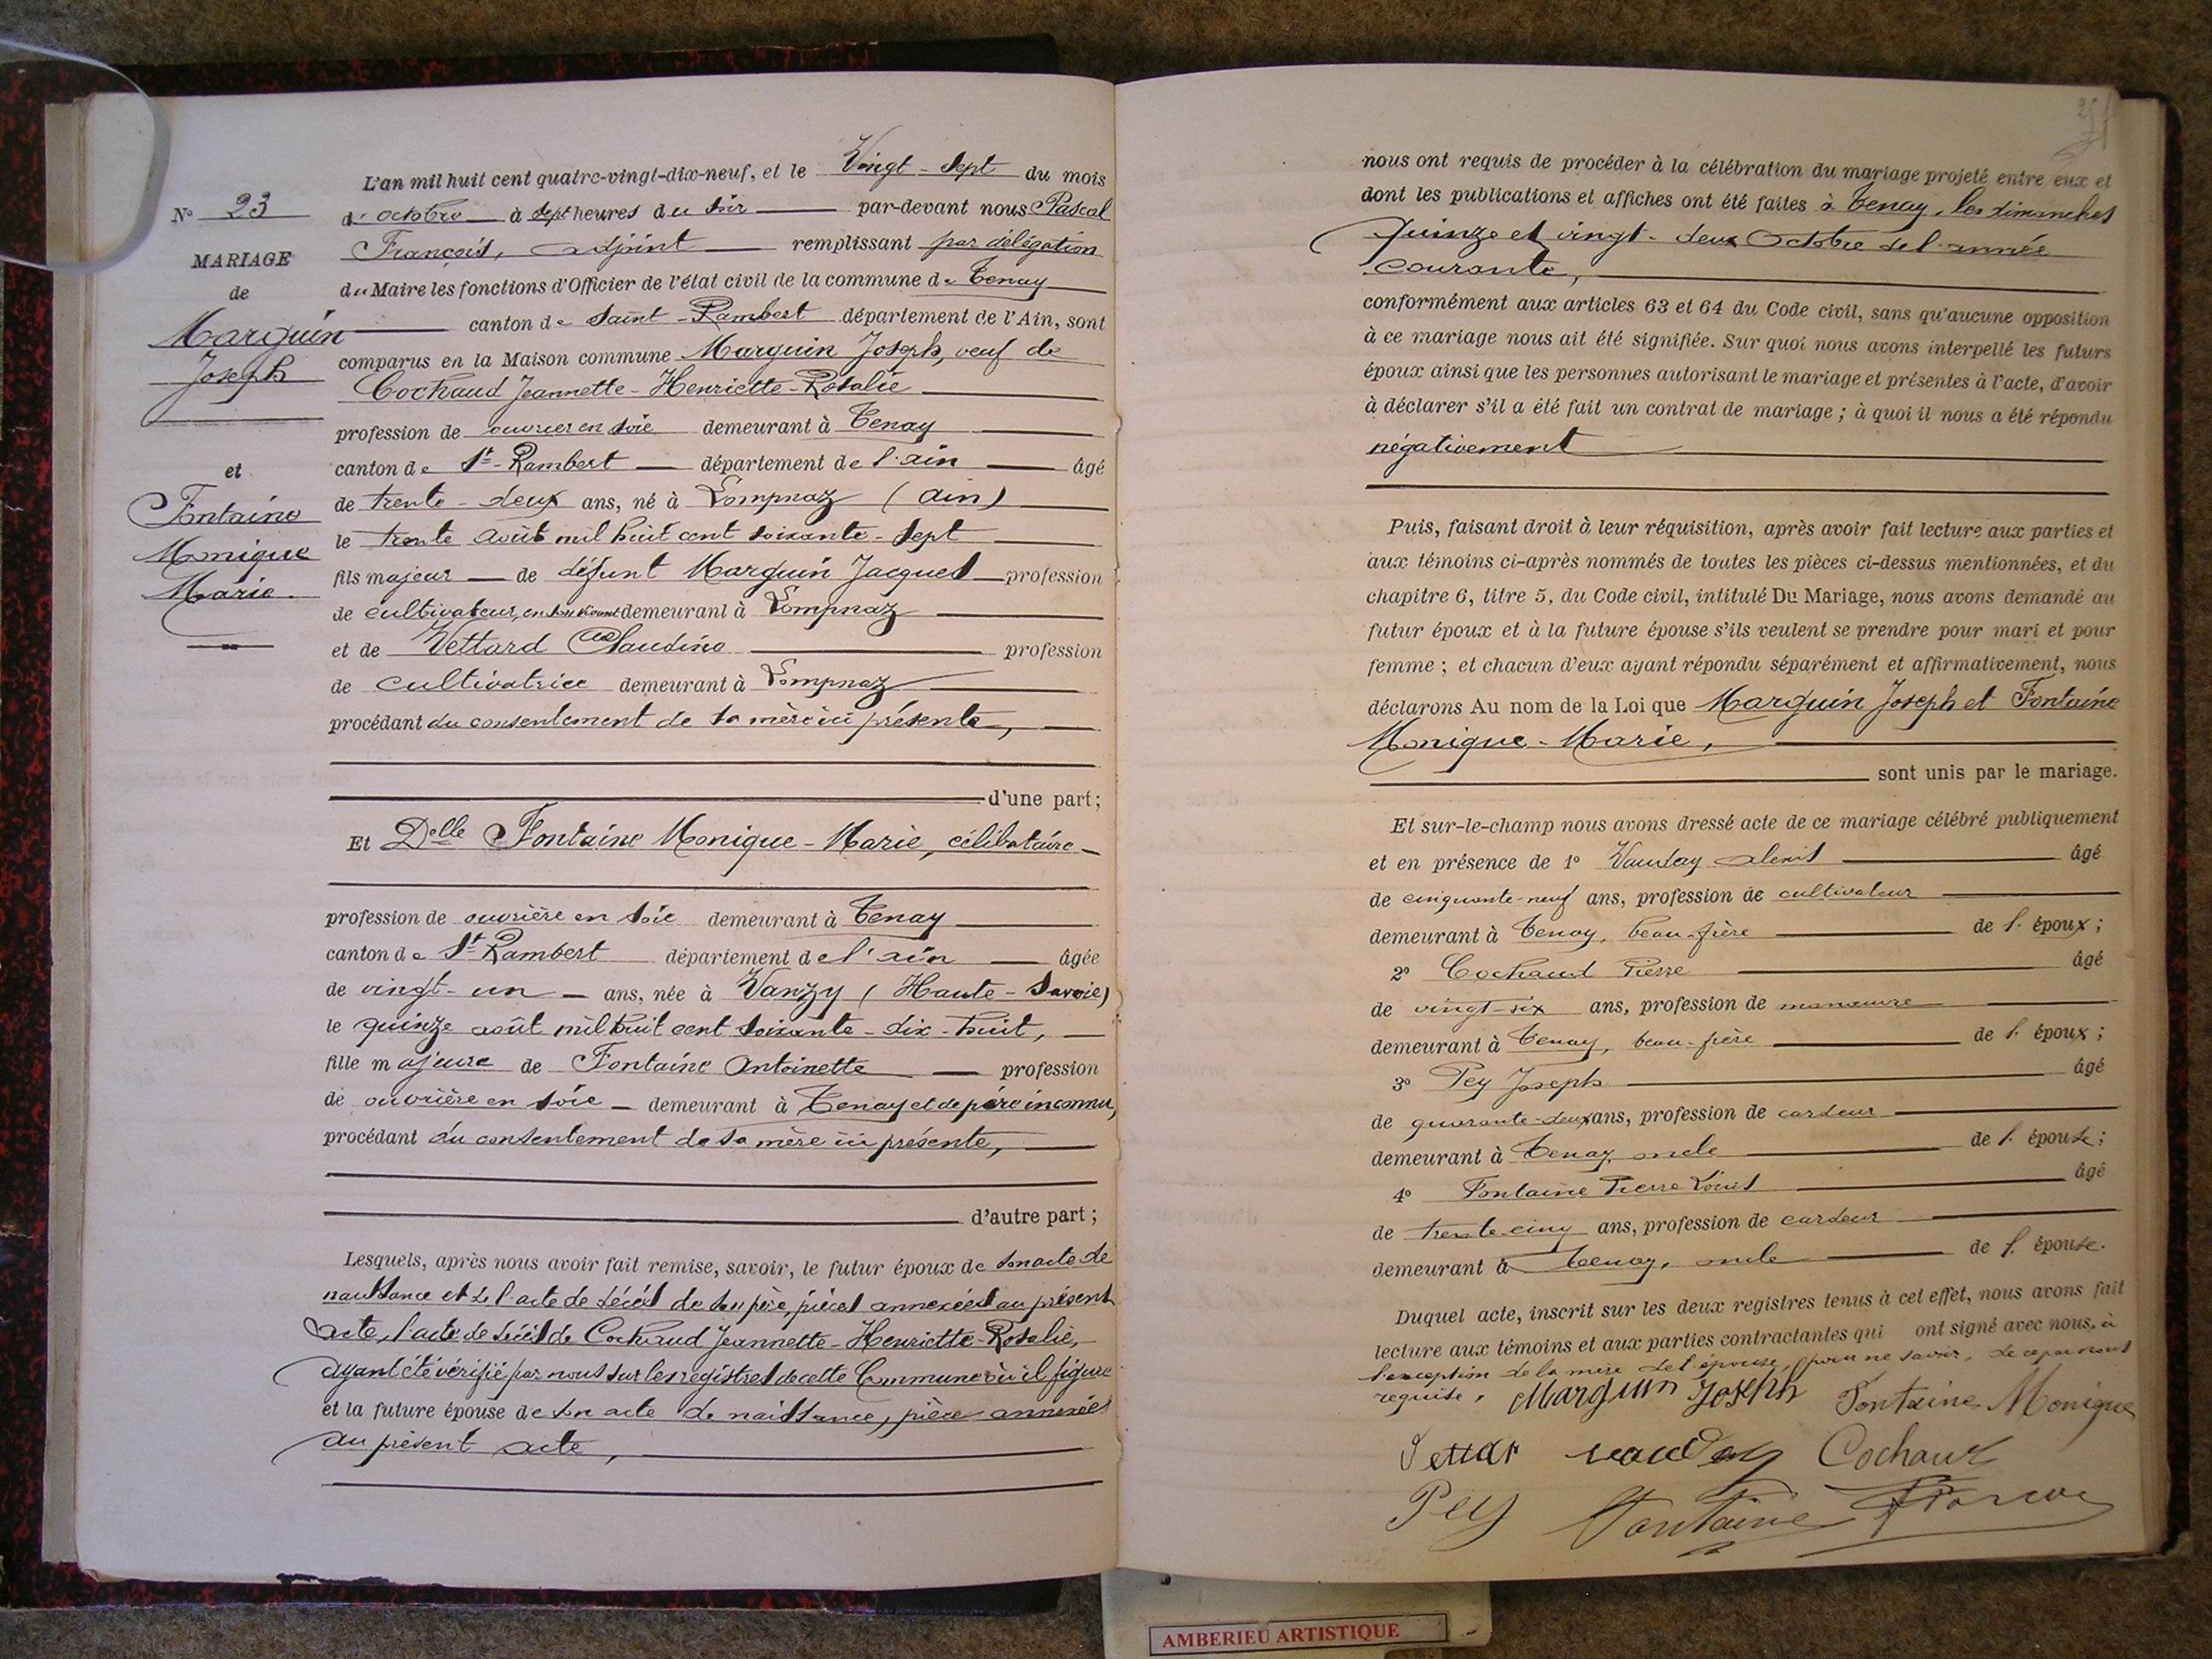 L'an mil huit cent quatre-vingt-dix-neuf, et le Vingt-sept du mois
d'octobre à sept heures du soir par-devant nous Pascal
François, adjoint remplissant par délégation
du Maire les fonctions d'Officier de l'état civil de la commune de Tenay
canton de Saint-Rambert département de l'Ain, sont
comparus en la Maison commune Marguin Joseph, veuf de
Cochaud Jeannette-Henriette-Rosalie
profession de ouvrier en soie demeurant à Tenay
canton de St-Rambert département de l'ain âgé
de trente-deux ans, né à Lompnaz (ain)
le trente août mil huit cent soixante-sept
fils majeur de défunt Marguin Jacques profession
de cultivateur, en son vivant demeurant à Lompnaz
et de Vettard Claudine profession
de cultivatrice demeurant à Lompnaz
procédant du consentement de sa mère ici présente,
d'une part;
Et Delle Fontaine Monique-Marie, célibataire
profession de ouvrière en soie demeurant à Tenay
canton de St-Rambert département de l'ain âgée
de vingt-un ans, née à Vanzy (Haute-Savoie)
le quinze août mil huit cent soixante-dix-huit,
fille majeure de Fontaine Antoinette profession
de ouvrière en soie demeurant à Tenay et de père inconnu,
procédant du consentement de sa mère ici présente,
d'autre part;
Lesquels, après nous avoir fait remise, savoir, le futur époux de son acte de
naissance et de l'acte de décès de son père, pièces annexées au présent
acte, l'acte de décès de Cochaud Jeannette-Henriette-Rosalie,
ayant été vérifié par nous sur les registres de cette Commune où il figure
et la future épouse de son acte de naissance, pièce annexée
au présent acte,
No 23
MARIAGE
de
Marguin
Joseph
et
Fontaine
Monique
Marie.
nous ont requis de procéder à la célébration du mariage projeté entre eux et
dont les publications et affiches ont été faites à Tenay, les dimanches
quinze et vingt-deux Octobre de l'année
courante,
conformément aux articles 63 et 64 du Code civil, sans qu'aucune opposition
à ce mariage nous ait été signifiée. Sur quoi nous avons interpellé les futurs
époux ainsi que les personnes autorisant le mariage et présentes à l'acte, d'avoir
à déclarer s'il a été fait un contrat de mariage; à quoi il nous a été répondu
négativement
Puis, faisant droit à leur réquisition, après avoir fait lecture aux parties et
aux témoins ci-après nommés de toutes les pièces ci-dessus mentionnées, et du
chapitre 6, titre 5, du Code civil, intitulé Du Mariage, nous avons demandé au
futur époux et à la future épouse s'ils veulent se prendre pour mari et pour
femme; et chacun d'eux ayant répondu séparément et affirmativement, nous
déclarons Au nom de la Loi que Marguin Joseph et Fontaine
Monique-Marie,
sont unis par le mariage.
Et sur-le-champ nous avons dressé acte de ce mariage célébré publiquement
et en présence de 1o Vauday alexis âgé
de cinquante-neuf ans, profession de cultivateur
demeurant à Tenay, beau-frère de l'époux;
2o Cochaud Pierre âgé
de vingt-six ans, profession de manœuvre
demeurant à Tenay, beau-frère de l'époux;
3o Pey Joseph âgé
de quarante-deux ans, profession de cardeur
demeurant à Tenay oncle de l'épouse;
4o Fontaine Pierre Louis âgé
de trente-cinq ans, profession de cardeur
demeurant à Tenay, oncle de l'épouse.
Duquel acte, inscrit sur les deux registres tenus à cet effet, nous avons fait
lecture aux témoins et aux parties contractantes qui ont signé avec nous. à
l'exception de la mère de l'épouse, pour ne savoir, de ce par nous
requise.
Marguin Joseph Fontaine Monique
vauday Cochaud
Pey Fontaine
AMBERIEU ARTISTIQUE